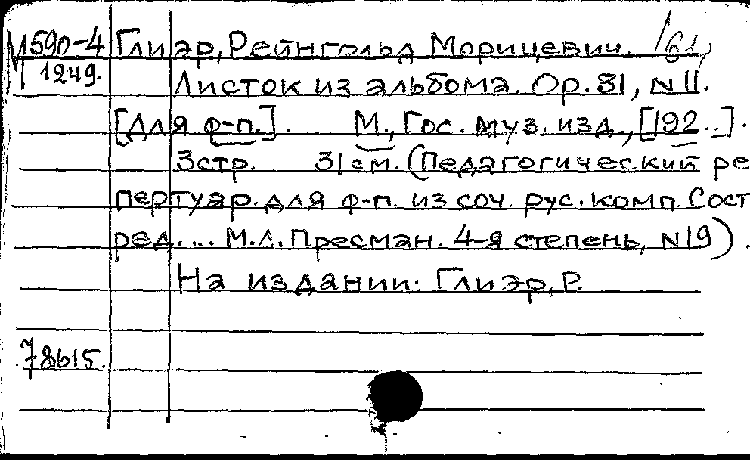 М590-4 Глиэр, Рейнгольд Морицевич. /61/
1249. Листок из альбома. Ор. 31, N 11.
[Для ф-п.]. М., Гос. муз. изд., [192..].
3 стр. 31 см. (Педагогический ре
пертуар для ф-п. из соч. рус. комп. Сост.
ред. ... М.Л. Пресман. 4-я степень, N 19).
На издании: Глиэр, Р.
78615.